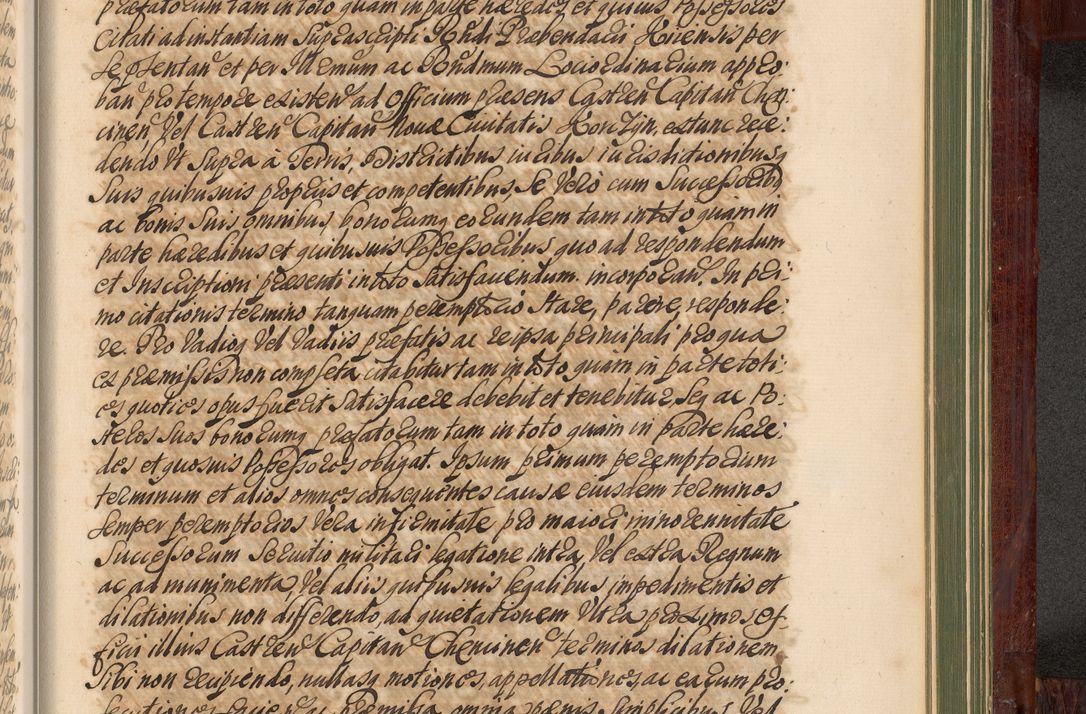 praefatorum tam in toto quam in parte haeredes et quivis Possessores
Citati ad instantiam Suprascripti Rndi Praebendarii Kiiensis per
se psentan et per Illrmum ac Rndmum Loci Ordinarium appro:
ban pro tempore existen ad Officium praesens Castren Capitan Chen:
cinen Vel Castren Capitan Novae Civitatis Korczyn, estunc rece:
dendo Ut Supra à Terris, Districtibus iuribus iurisdictionibusq
Suis quibusvis propriis et competentibus, Se Verò cum Successoribq
ac bonis Suis omnibus, bonorumq eorundem tam in toto quam in
parte haeredibus et quibusvis Possessoribus quo ad respondendum
et Inscriptioni praesenti in toto Satisfaciendum. incorporan. In pri:
mo citationis termino tanquam peremptorio Stare, parere, responde:
re. Pro Vadioq Vel Vadiis praefatis ac re ipsa principali pro qua
ex praemissis non completa citabitur tam in toto quam in parte toti:
es quoties opus fuerit Satisfacere debebit et tenebitur, Seq ac Po:
steros Suos bonorumq praefatorum tam in toto quam in parte haere:
des et quosvis Possessores obligat. Ipsum primum peremptorium
terminum et alios omnes consequentes causae eiusdem terminos
Semper peremptorios Vera infirmitate pro maiori minorennitate
Successorum Servitio militari legatione intra, Vel extra Regnum
ac ad munimenta, Vel aliis quibusvis legalibus impedimentis et
dilationibus non differendo, ad quietationem Ultra proximos Of:
ficii illius Castren Capitan Chencinen terminos dilationem
Sibi non recipiendo, nullasq motiones, appellationes, ac earum pro: